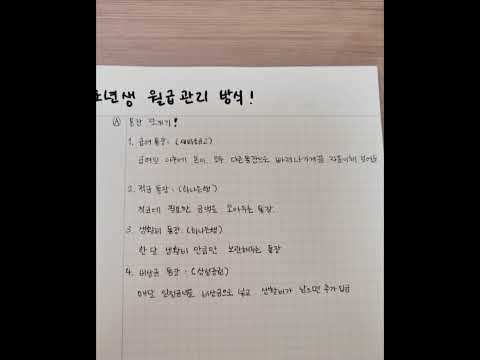 초년생 월급관리 방식!
Ⓐ 통장 쪼개기!
1. 급여통장 : (새마을금고)
급여일 이후에 돈이 모두 다른통장으로 빠져나가게끔 자동이체 걸어둠
2. 적금 통장 : (하나은행)
적금에 필요한 금액만 모아두는 통장.
3. 생활비 통장 : (하나은행)
한 달 생활비 만큼만 보관해두는 통장
4. 비상금 통장 : (삼성증권)
매달 일정금액을 비상금으로 넣고 생활비가 남으면 추가 입금